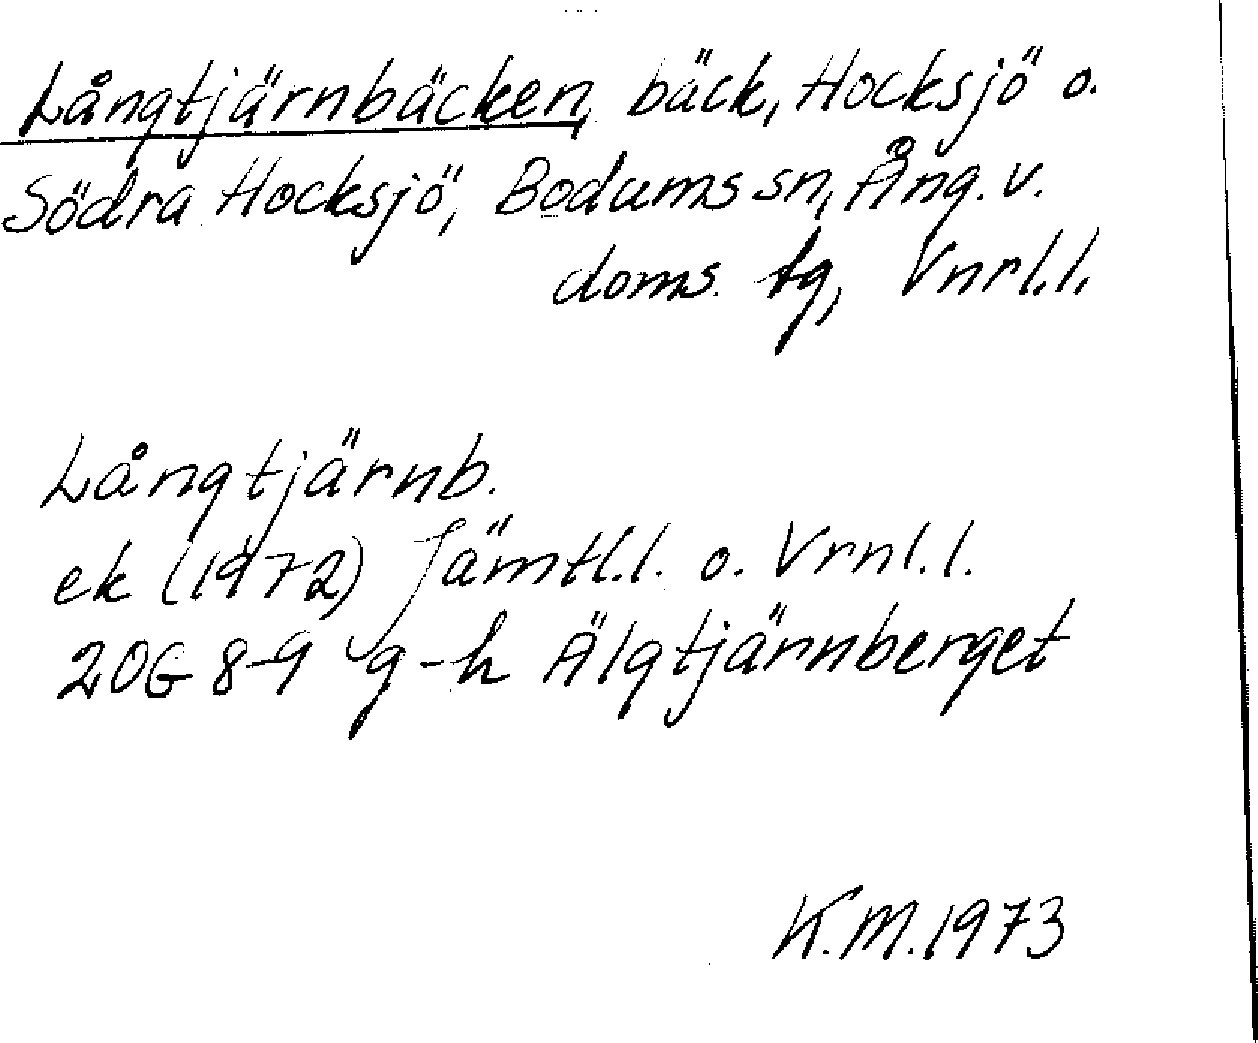 Långtjärnbäcken, bäck, Hocksjö o.
Södra Hocksjö, Bodums sn, Ång. v.
doms. tg, Vnrl.l.
Långtjärnb.
ek (1972) Jämtl.l. o. Vrnl.l.
20G 8-9 g-h Älgtjärnberget
K.M.1973